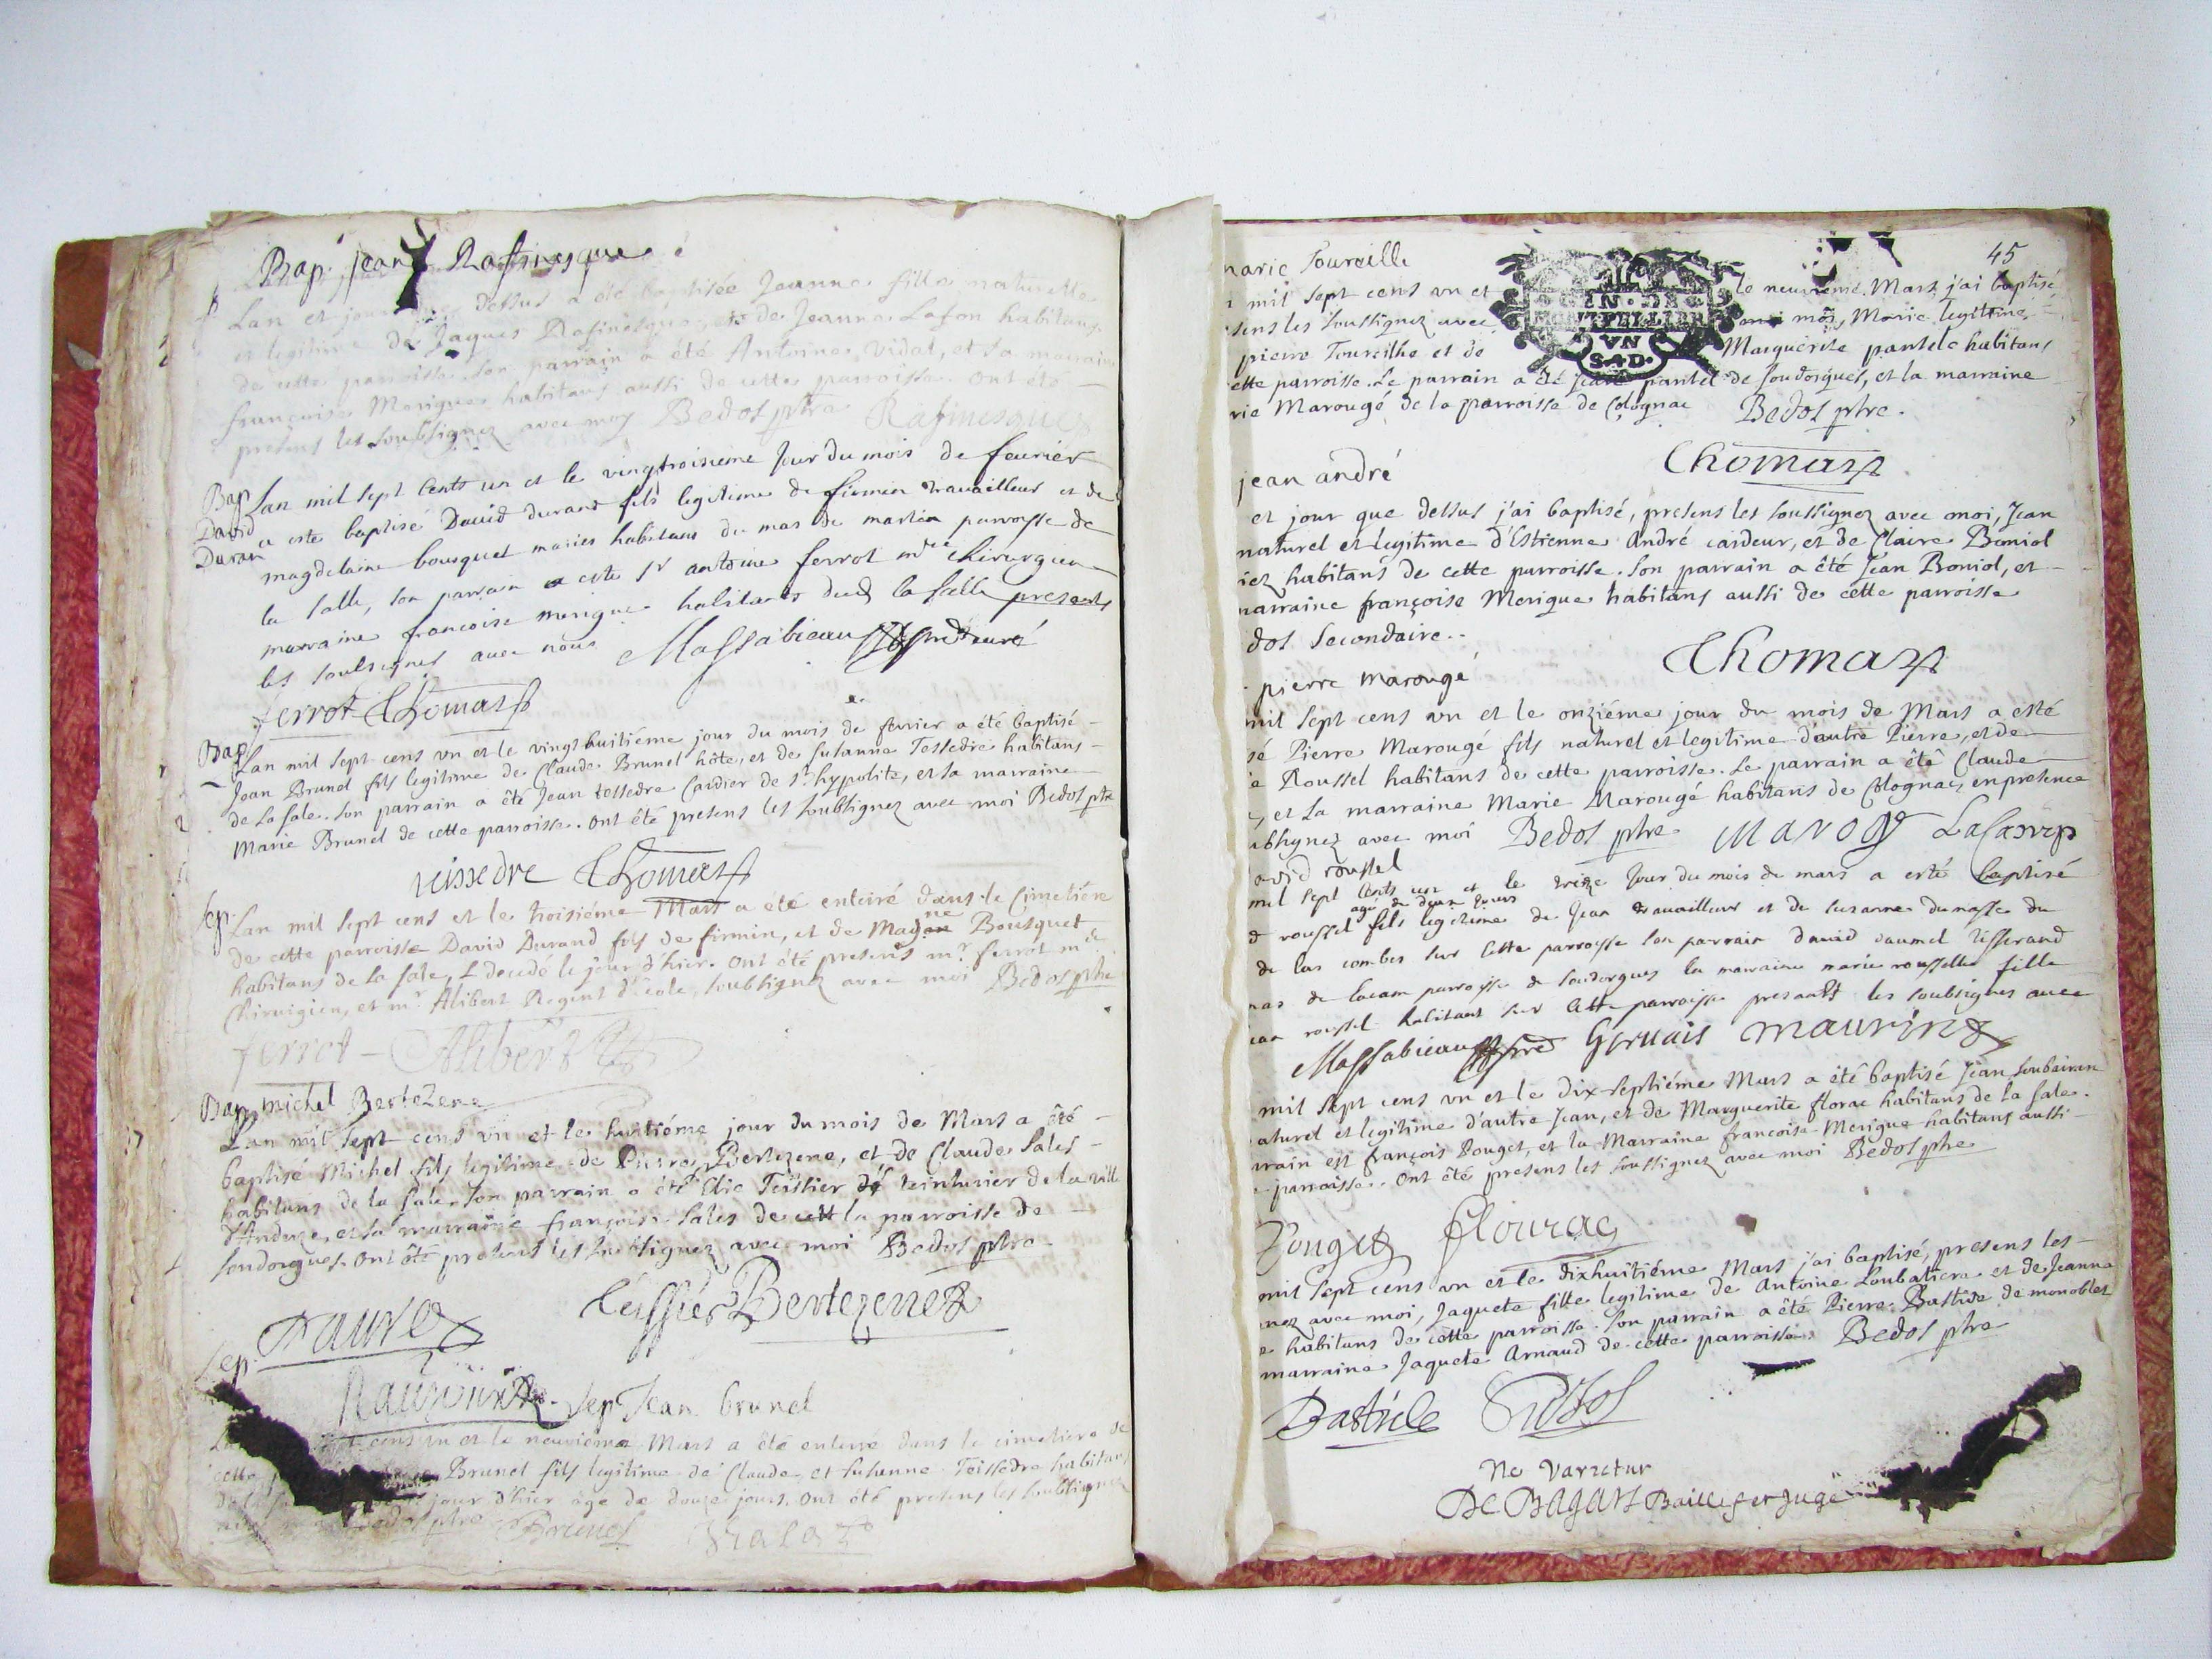 Bap. jean Rafinesque
Lan et jour dessus a été baptisée Jeanne fille naturelle
et legitime de Jaques Rafinesque, et de Jeanne Lafon habitans
de cette parroisse. Son parrain a été Antoine Vidal, et sa marraine
françoise Merigue habitans aussi de cette parroisse. ont été
presens les soubsignez avec moy Bedos ptre Rafinesque
Bap Lan mil sept Cents un et le vingtroisieme Jour du mois de feurier
David a este baptisé Dauid durant fils legitime de firmin trauailleur et de
Duran magdelaine bousquet maries habitans du mas de martin parroysse de
la salle, son parrain a este sr antoine ferrot mtre chirurgien
marraine francoise merigue habitants dud la salle presents
les soubsignes auec nous Massabieau curé
ferrot Thomas
Bap. Lan mil sept cens vn et le vingt huitiéme jour du mois de feurier a été baptisé
Jean Brunel fils legitime de Claude Brunel hôte, et de Susanne Tessedre habitans
de La sale. Son parrain a êté Jean tessedre Cardier de st hypolite, et sa marraine
Marie Brunel de cette parroisse. ont été presens les soubsignez avec moi Bedos ptre
teissedre Thomas
Sep. Lan mil sept cens et le troisiéme Mars a été enterré dans le Cimetière
de cette parroisse David Durand fils de firmin, et de Magne Bousquet
habitans de La sale, decedé le jour d'hier. ont été presens mr. ferrot me
Chirurgien, et mr. Alibert Regent d'école, soubsignez avec moi Bedos ptre
ferrot Alibert
Bap. michel Bertezene
Lan mil sept cens vn et le huitiéme jour du mois de Mars a êté
baptisé Michel fils legitime de Pierre Bertezene, et de Claude Sales
habitans de la sale. Son parrain a été Elie Teissier teinturier de la ville
d'Anduze, et sa marraine françoise Sales de la parroisse de
soudorgues. ont été presens les soubsignez avec moi Bedos ptre
teissier Bertezene
Sep.
Sep Jean brunel
cens vn et le neuviéme Mars a été enterré dans le cimetiere de
cette Brunel fils legitime de Claude, et Susanne Teissedre habitans
de la jour d'hier agé de douze jours. ont été presens les soubsignez
Bedos ptre Brunel
45
marie Tourcille
mil sept cens vn et le neuvieme Mars j'ai baptisé
GEN. DE
MONTPELLIER
VN
S4D.
sens les soussignez avec moi, Marie legitime
pierre Tourcilhe et de Marguerite pantele habitans
ette parroisse. Le parrain a été Jean pantel de soudorgues, et la marraine
rie Marougé de la parroisse de Colognac Bedos ptre.
Thomas
jean andré
et jour que dessus j'ai baptisé, presens les soussignez avec moi, Jean
naturel et legitime d'Estienne André cardeur, et de Claire Boniol
iez habitans de cette parroisse. Son parrain a êté Jean Boniol, et
marraine françoise Merigue habitans aussi de cette parroisse
dos secondaire.
Thomas
pierre marougé
mil sept cens vn et le onziéme jour du mois de Mars a esté
sé Pierre Marougé fils naturel et legitime d'autre Pierre, et de
e Roussel habitans de cette parroisse. Le parrain a êtê Claude
, et La marraine Marie Marougé habitans de Colognac, en presence
ubsignez avec moi Bedos ptre
avid roussel
mil sept Cents un et le treize Jour du mois de mars a esté baptisé
agé de deux jours
d roussel fils legitime de Jean trauailleur et de suzanne dumasse du
de las combes sur cette parroysse son parrain dauid daumel tisserand
mas de lacam parroysse de soudorgues la marraine marie rousselle fille
ean roussel habitant sur cette parroisse presants les soubsignes auec
Massabieau Geruais maurin
mil sept cens vn et le dix-septiéme Mars a êtê baptisé Jean Soubairan
aturel et legitime d'autre Jean, et de Marguerite florac habitans de la sale.
rrain est françois Pouget, et la Marraine francoise Merigue habitans aussi
parroisse. ont êté presens les soussignez avec moi Bedos ptre
Pouget flourac
mil sept cens vn et le dixhuitiéme Mars j'ai baptisé, presens les
nez avec moi, Jaquete fille legitime de Antoine Loubatiere et de Jeanne
e habitans de cette parroisse. Son parrain a été Pierre Bastide de monoblet
marraine Jaquete Arnaud de cette parroisse. Bedos ptre
Bastide
Ne Varietur
De Bagars Baillif et Juge